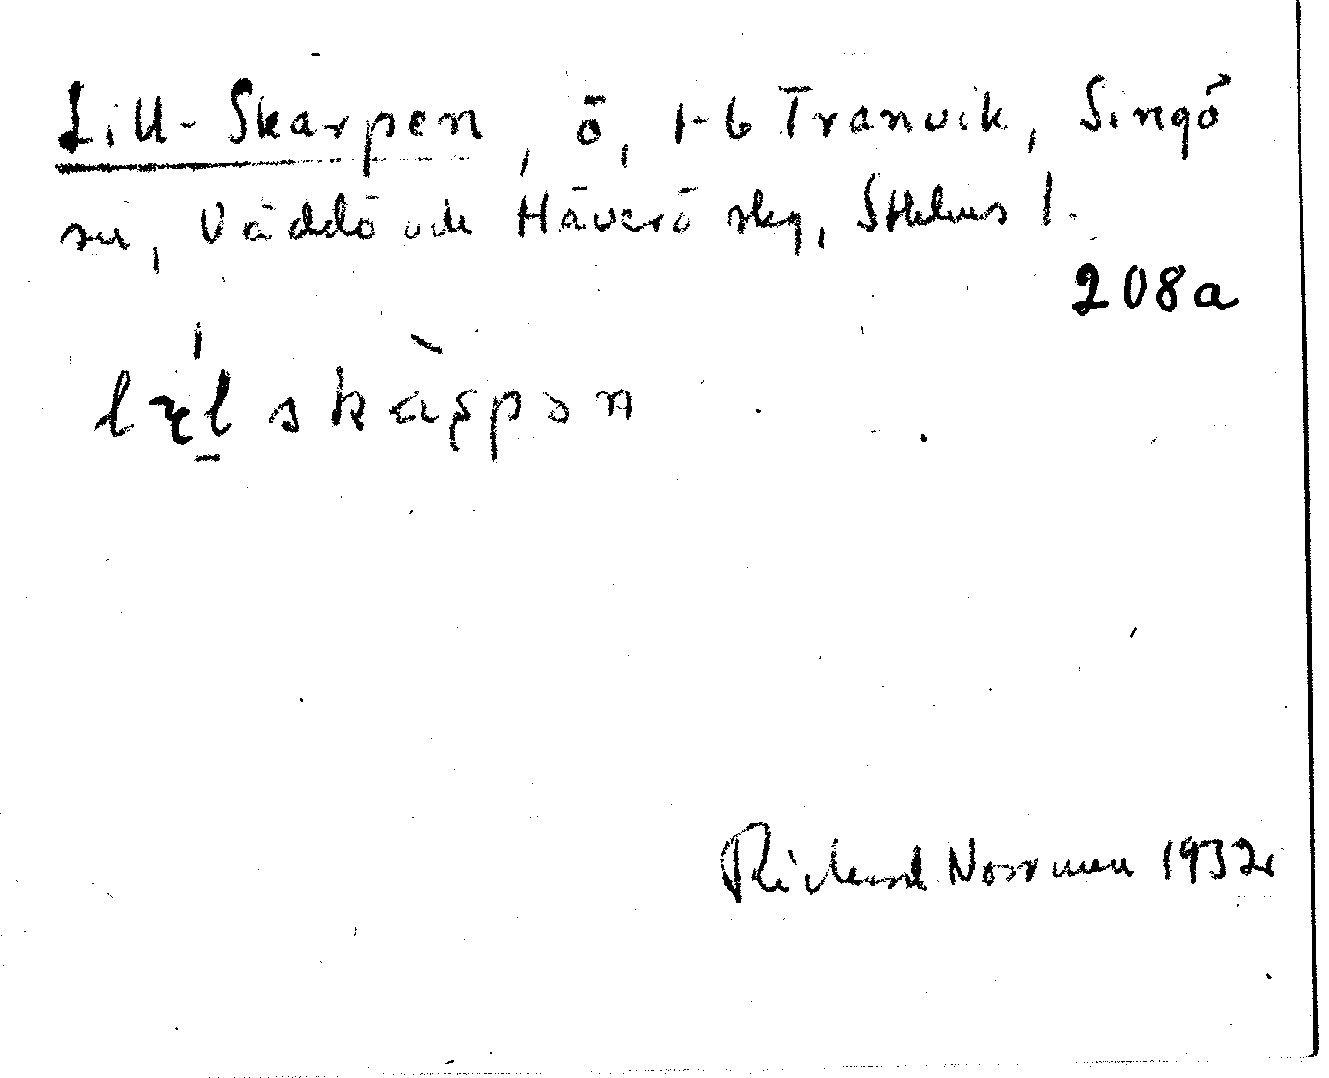 Lill-Skarpen, ö, t-b Tranvik, Singö
sn, Väddö och Häverö skg, Sthlms l.
208a
skàrpən
Richard Norrman 1932